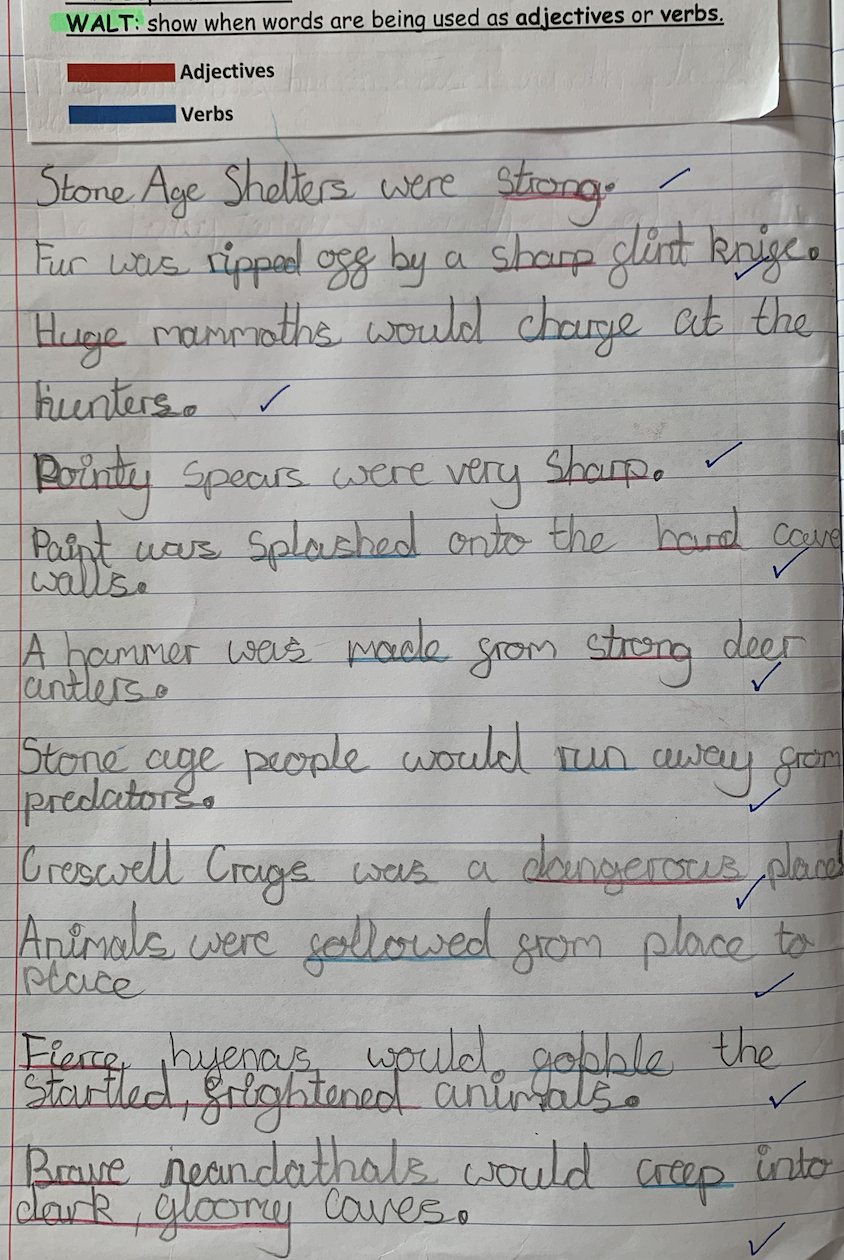 WALT: show when words are being used as adjectives or verbs.
Adjectives
Verbs
Stone Age Shelters were strong.
Fur was ripped off by a sharp flint knife.
Huge mammoths would charge at the
hunters.
Pointy spears were very sharp.
Paint was splashed onto the hard cave
walls.
A hammer was made from strong deer
antlers.
Stone age people would run away from
predators.
Creswell Crags was a dangerous place
Animals were followed from place to
place
Fierce, hyenas would gobble the
startled, frightened animals.
Brave neandathals would creep into
dark, gloomy caves.